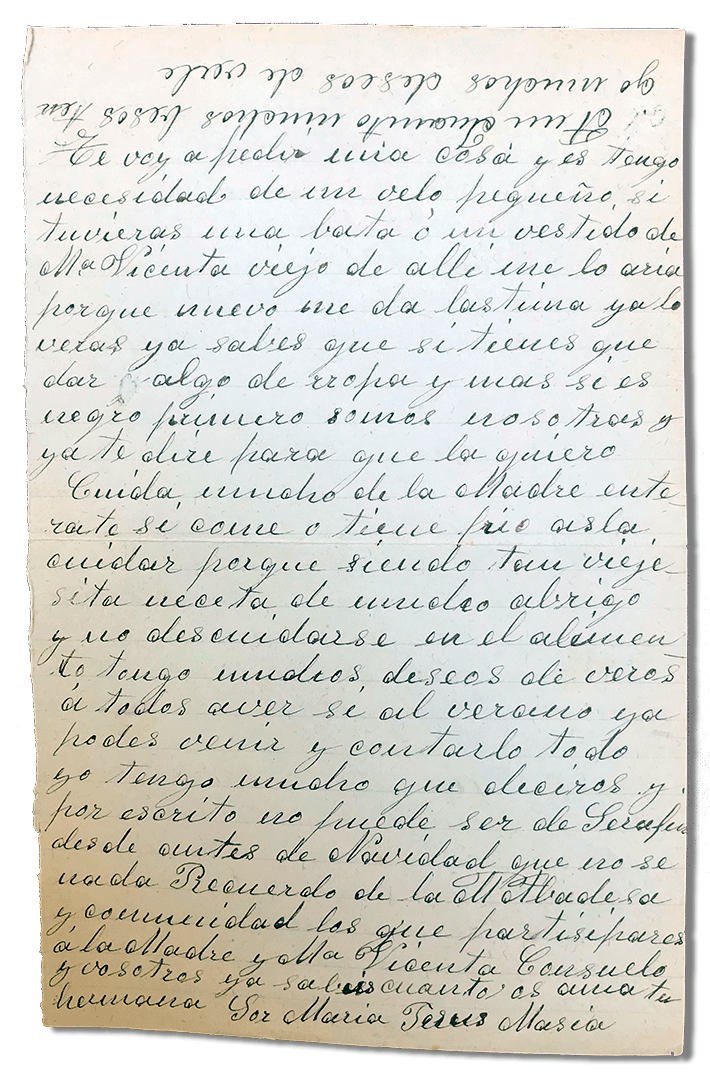 Te voy a pedir una cosa y es tengo
necesidad de un velo pequeño, si
tuvieras una bata ó un vestido de
Ma Vicenta viejo de alli me lo aria
porque nuevo me da lastima ya lo
veras ya sabes que si tienes que
dar algo de rropa y mas si es
negro primero somos nosotras y
ya te dire para que la quiero
Cuida mucho de la Madre ente
rate si come o tiene frio asla
cuidar porque siendo tan vieje-
sita neceta de mucho abrigo
y no descuidarse en el alimen
to tengo muchos deseos de veros
á todos aver si al verano ya
podes venir y contarlo todo
yo tengo mucho que deciros y
por escrito no puede ser de Serafin
desde antes de Navidad que no se
nada Recuerdo de la M Abadesa
y comunidad los que partisipares
á la Madre y Ma Vicenta Consuelo
y vosotros ya sabeis cuanto os ama tu
hermana Sor Maria Jesus Masia
A un Juanito muchos besos ten
go muchos deseos de verle